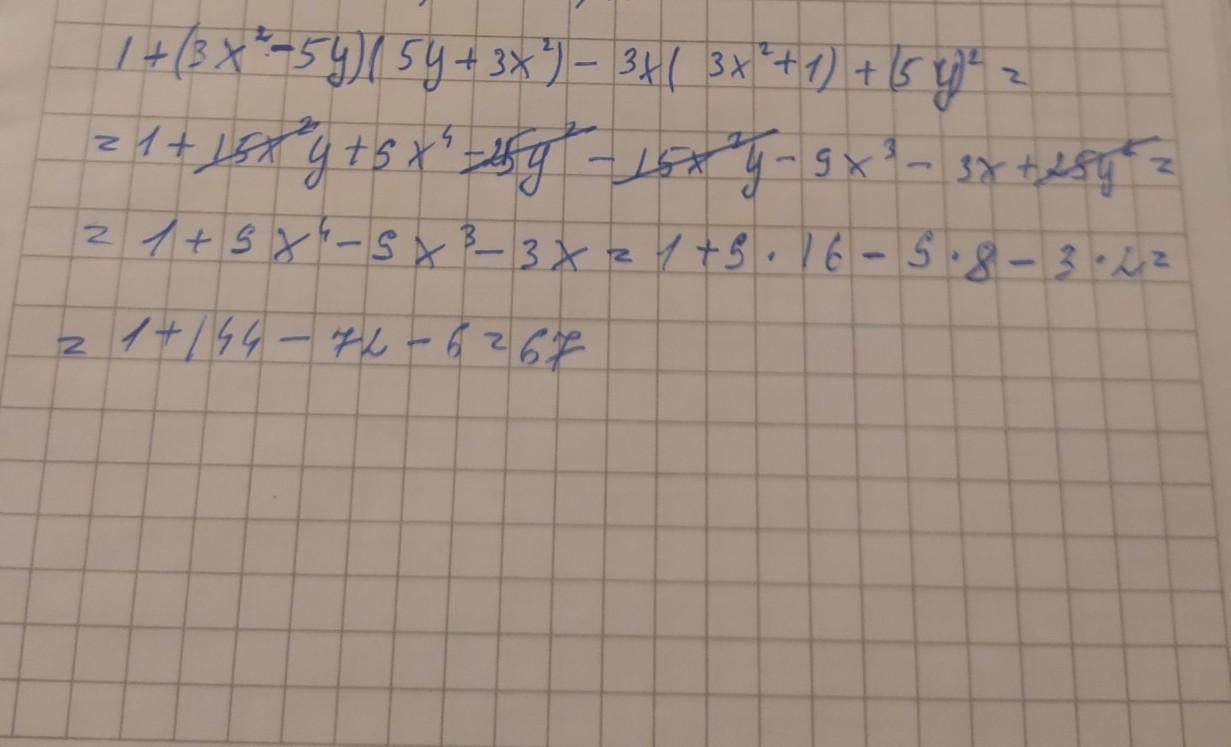 1+(3x²-5y)(5y+3x²)-3x(3x²+1)+(5y)²=
=1+15x²y+9x⁴-25y²-15x²y-9x³-3x+25y²=
=1+9x⁴-9x³-3x=1+9·16-9·8-3·2=
=1+144-72-6=67